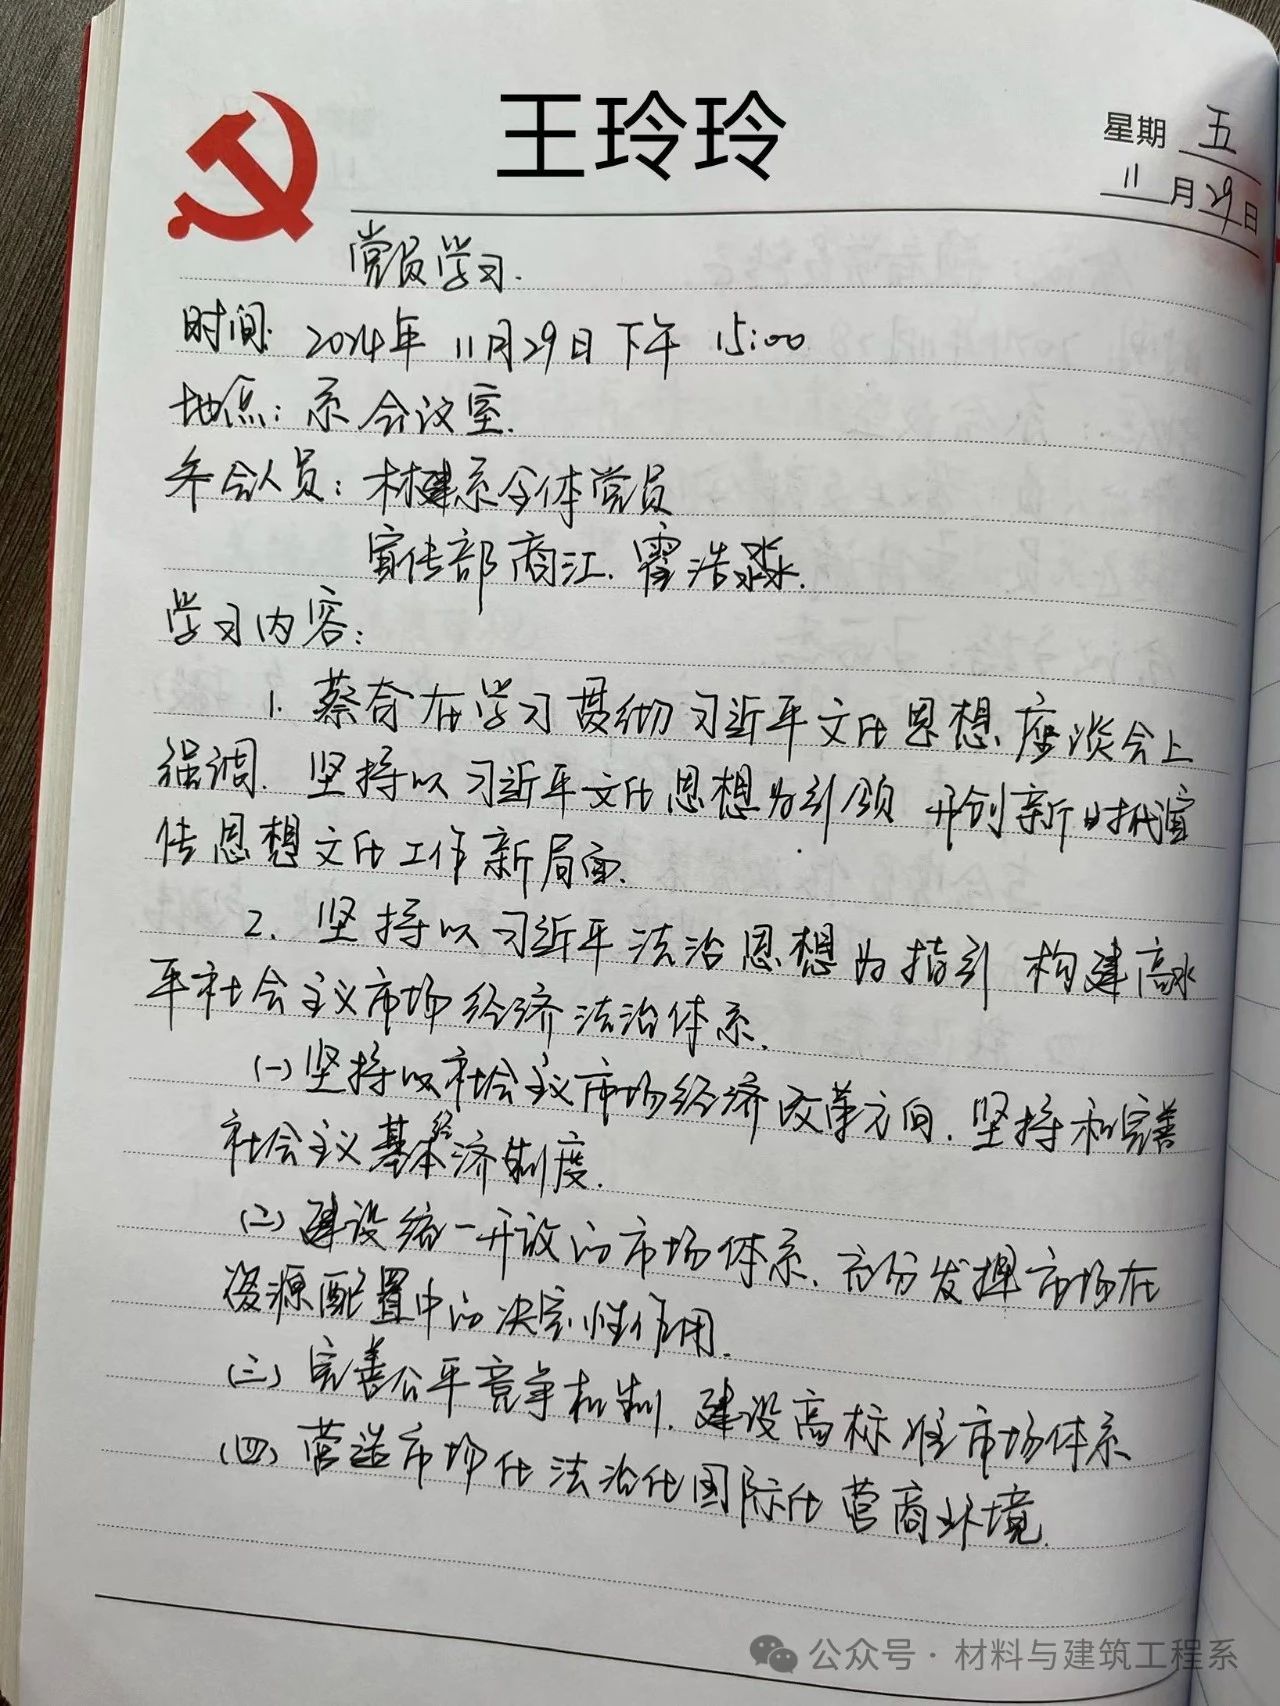 王玲玲
星期 五
11月29日
党员学习.
时间: 2024年 11月29日下午 15:00
地点: 系会议室.
参会人员: 材建系全体党员
宣传部商江. 霍浩淼.
学习内容:
1. 蔡奇在学习贯彻习近平文化思想座谈会上
强调. 坚持以习近平文化思想为引领 开创新时代宣
传思想文化工作新局面.
2. 坚持以习近平法治思想为指引 构建高水
平社会主义市场经济法治体系.
(一) 坚持以社会主义市场经济改革方向. 坚持和完善
社会主义基本经济制度.
(二) 建设统一开放的市场体系. 充分发挥市场在
资源配置中的决定性作用.
(三) 完善公平竞争机制. 建设高标准市场体系
(四) 营造市场化法治化国际化营商环境.
公众号 · 材料与建筑工程系